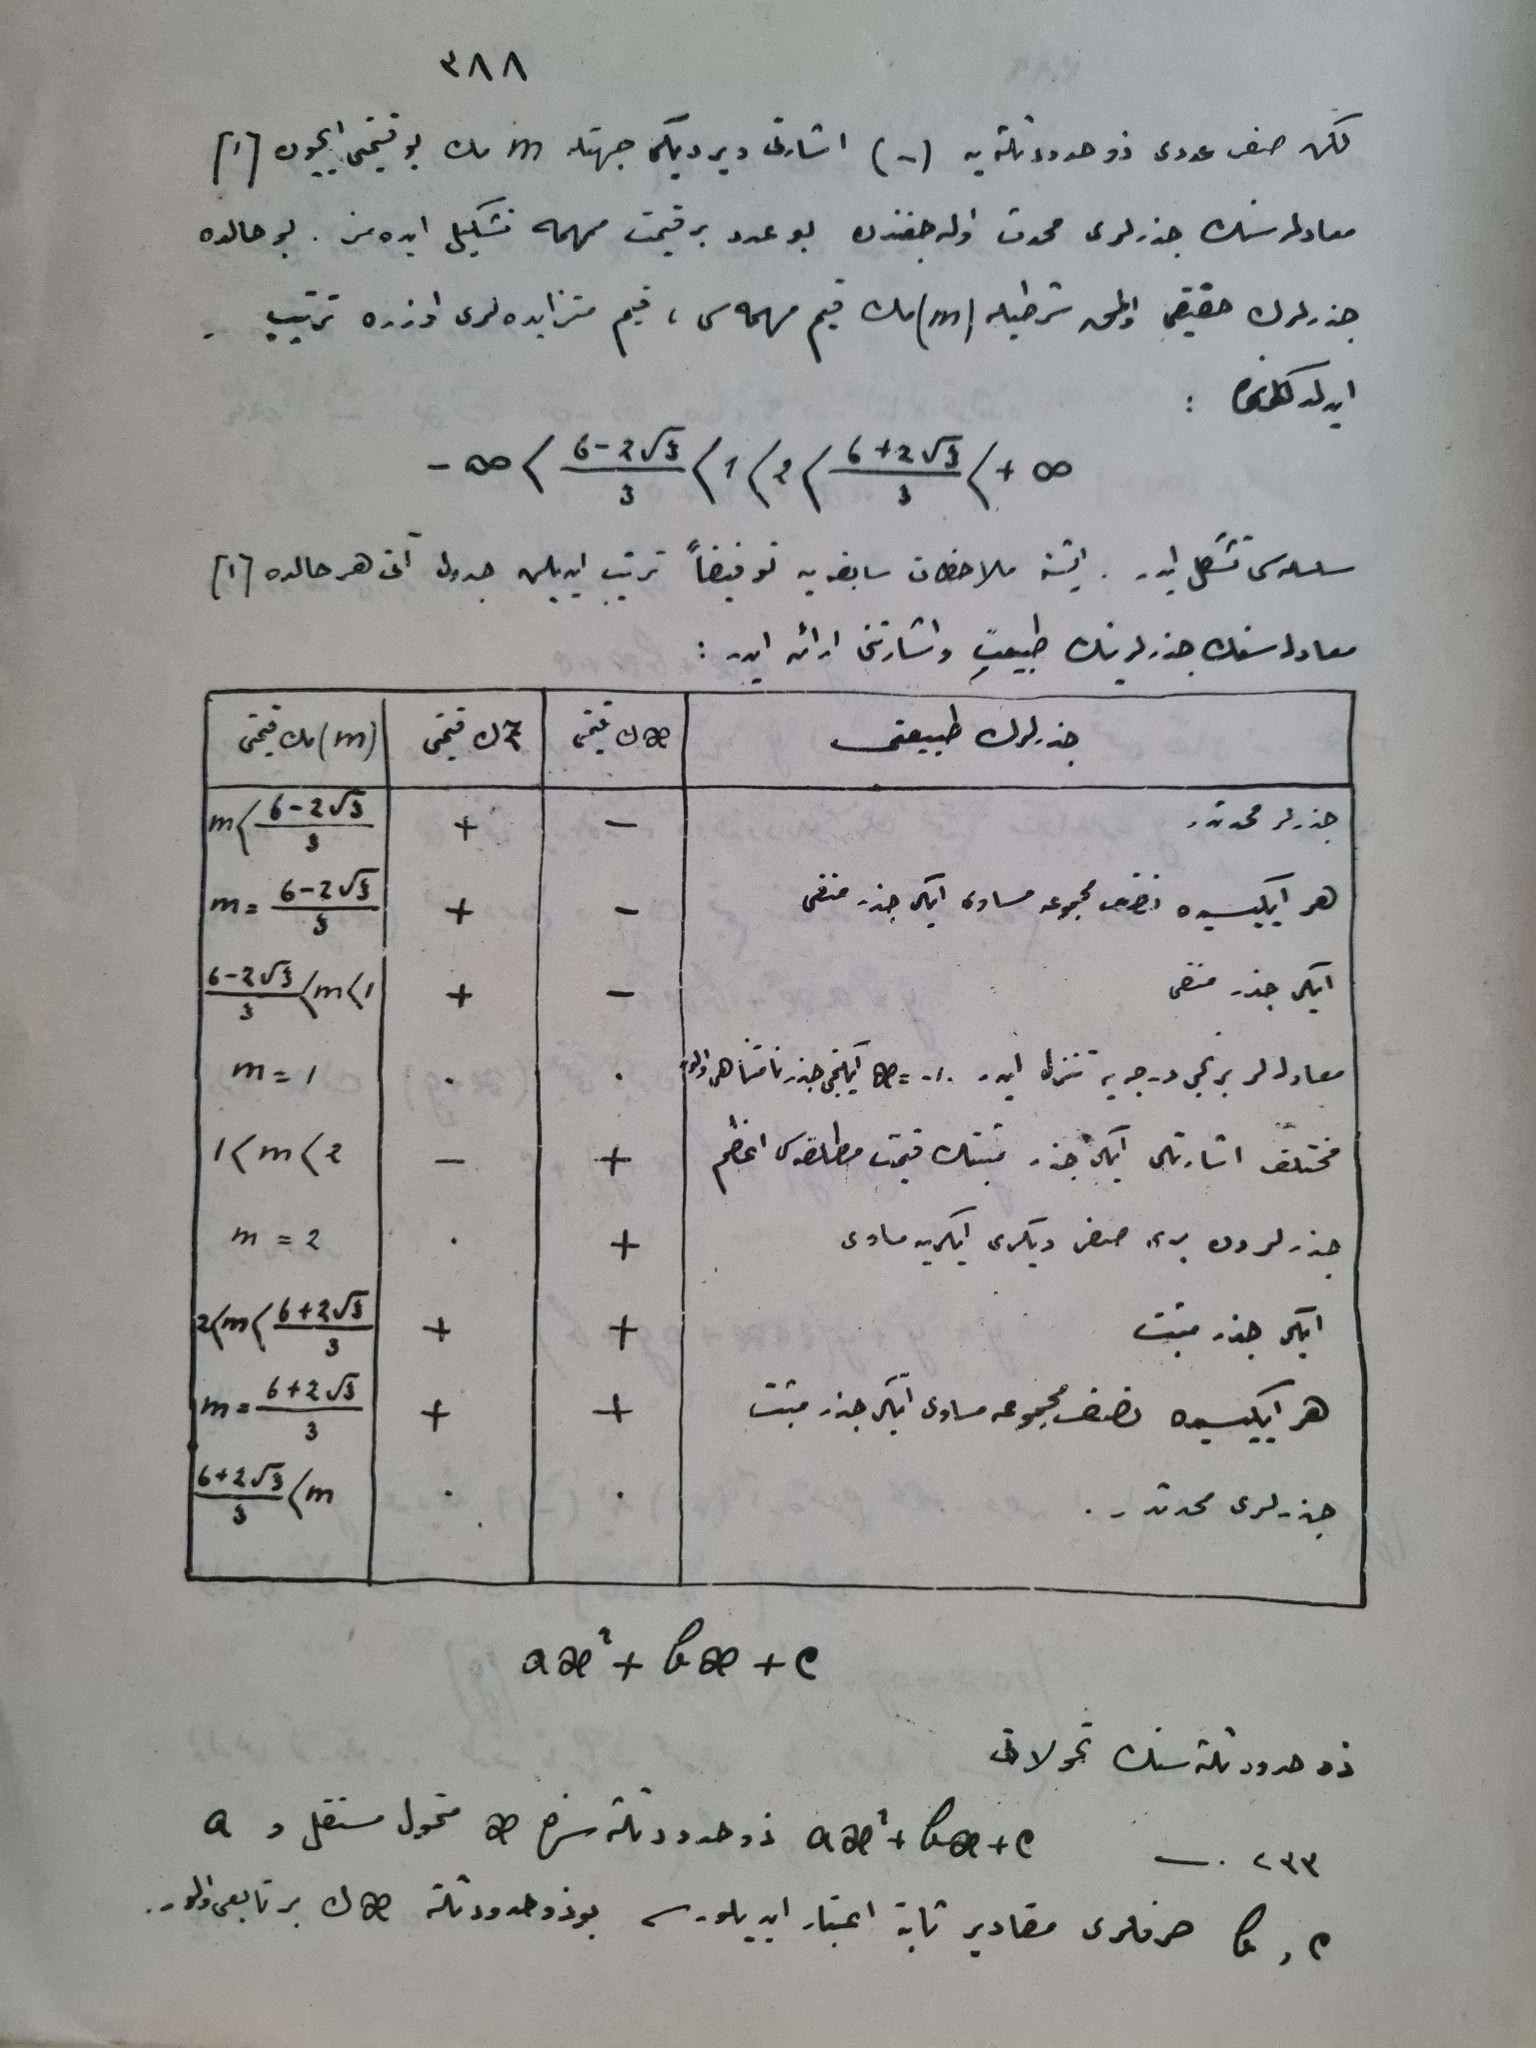 ٣٨٨
لكن صفر عددى ذو حدود ثلثه يه (-) اشارتى ويرديكى جهتله m نك بو قيمتى ايچون [١]
معادله سنك جذرلرى محدث اوله جغندن بو عدد بر قيمت مهمه تشكيل ايده مز . بو حالده
جذرلرك حقيقى اولمق شرطيله (m) نك قيم مهمه سى ، قيم متزايده لرى اوزره ترتيب
ايدلدكلرنده :
- ∞ < (6-2√3)/3 < 1 < 2 < (6+2√3)/3 < + ∞
سلسله سى تشكل ايدر . ايشته ملاحظات سابقه يه توفيقاً ترتيب ايديلن جدول آتى هر حالده [١]
معادله سنك جذرلرينك طبيعت و اشارتنى ارائه ايدر :
جذرلرك طبيعتى | x ك قيمتى | ك قيمتى | (m) نك قيمتى
جذرلر محدثدر | - | + | m < (6-2√3)/3
هر ايكيسيده نصف مجموعه مساوى ايكى جذر منفى | - | + | m = (6-2√3)/3
ايكى جذر منفى | - | + | (6-2√3)/3 < m < 1
معادله لر برنجى درجه يه تنزل ايدر ايكنجى جذر نامتناهى اولور | . | . | m = 1
مختلف اشارتلى ايكى جذر مثبتك قيمت مطلقه سى اعظم | + | - | 1 < m < 2
جذرلردن برى صفر ديكرى ايكى يه مساوى | + | . | m = 2
ايكى جذر مثبت | + | + | 2 < m < (6+2√3)/3
هر ايكيسيده نصف مجموعه مساوى ايكى جذر مثبت | + | + | m = (6+2√3)/3
جذرلرى محدثدر . | . | . | (6+2√3)/3 < m
ax² + bx + c
ذو حدود ثلثه سنك تحولاتى
٢٣٣ . — ax² + bx + c ذو حدود ثلثه سنده x متحول مستقل و a
b , c حرفلرى مقادير ثابته اعتبار ايديلورسه بو ذو حدود ثلثه x ك بر تابعى اولور .